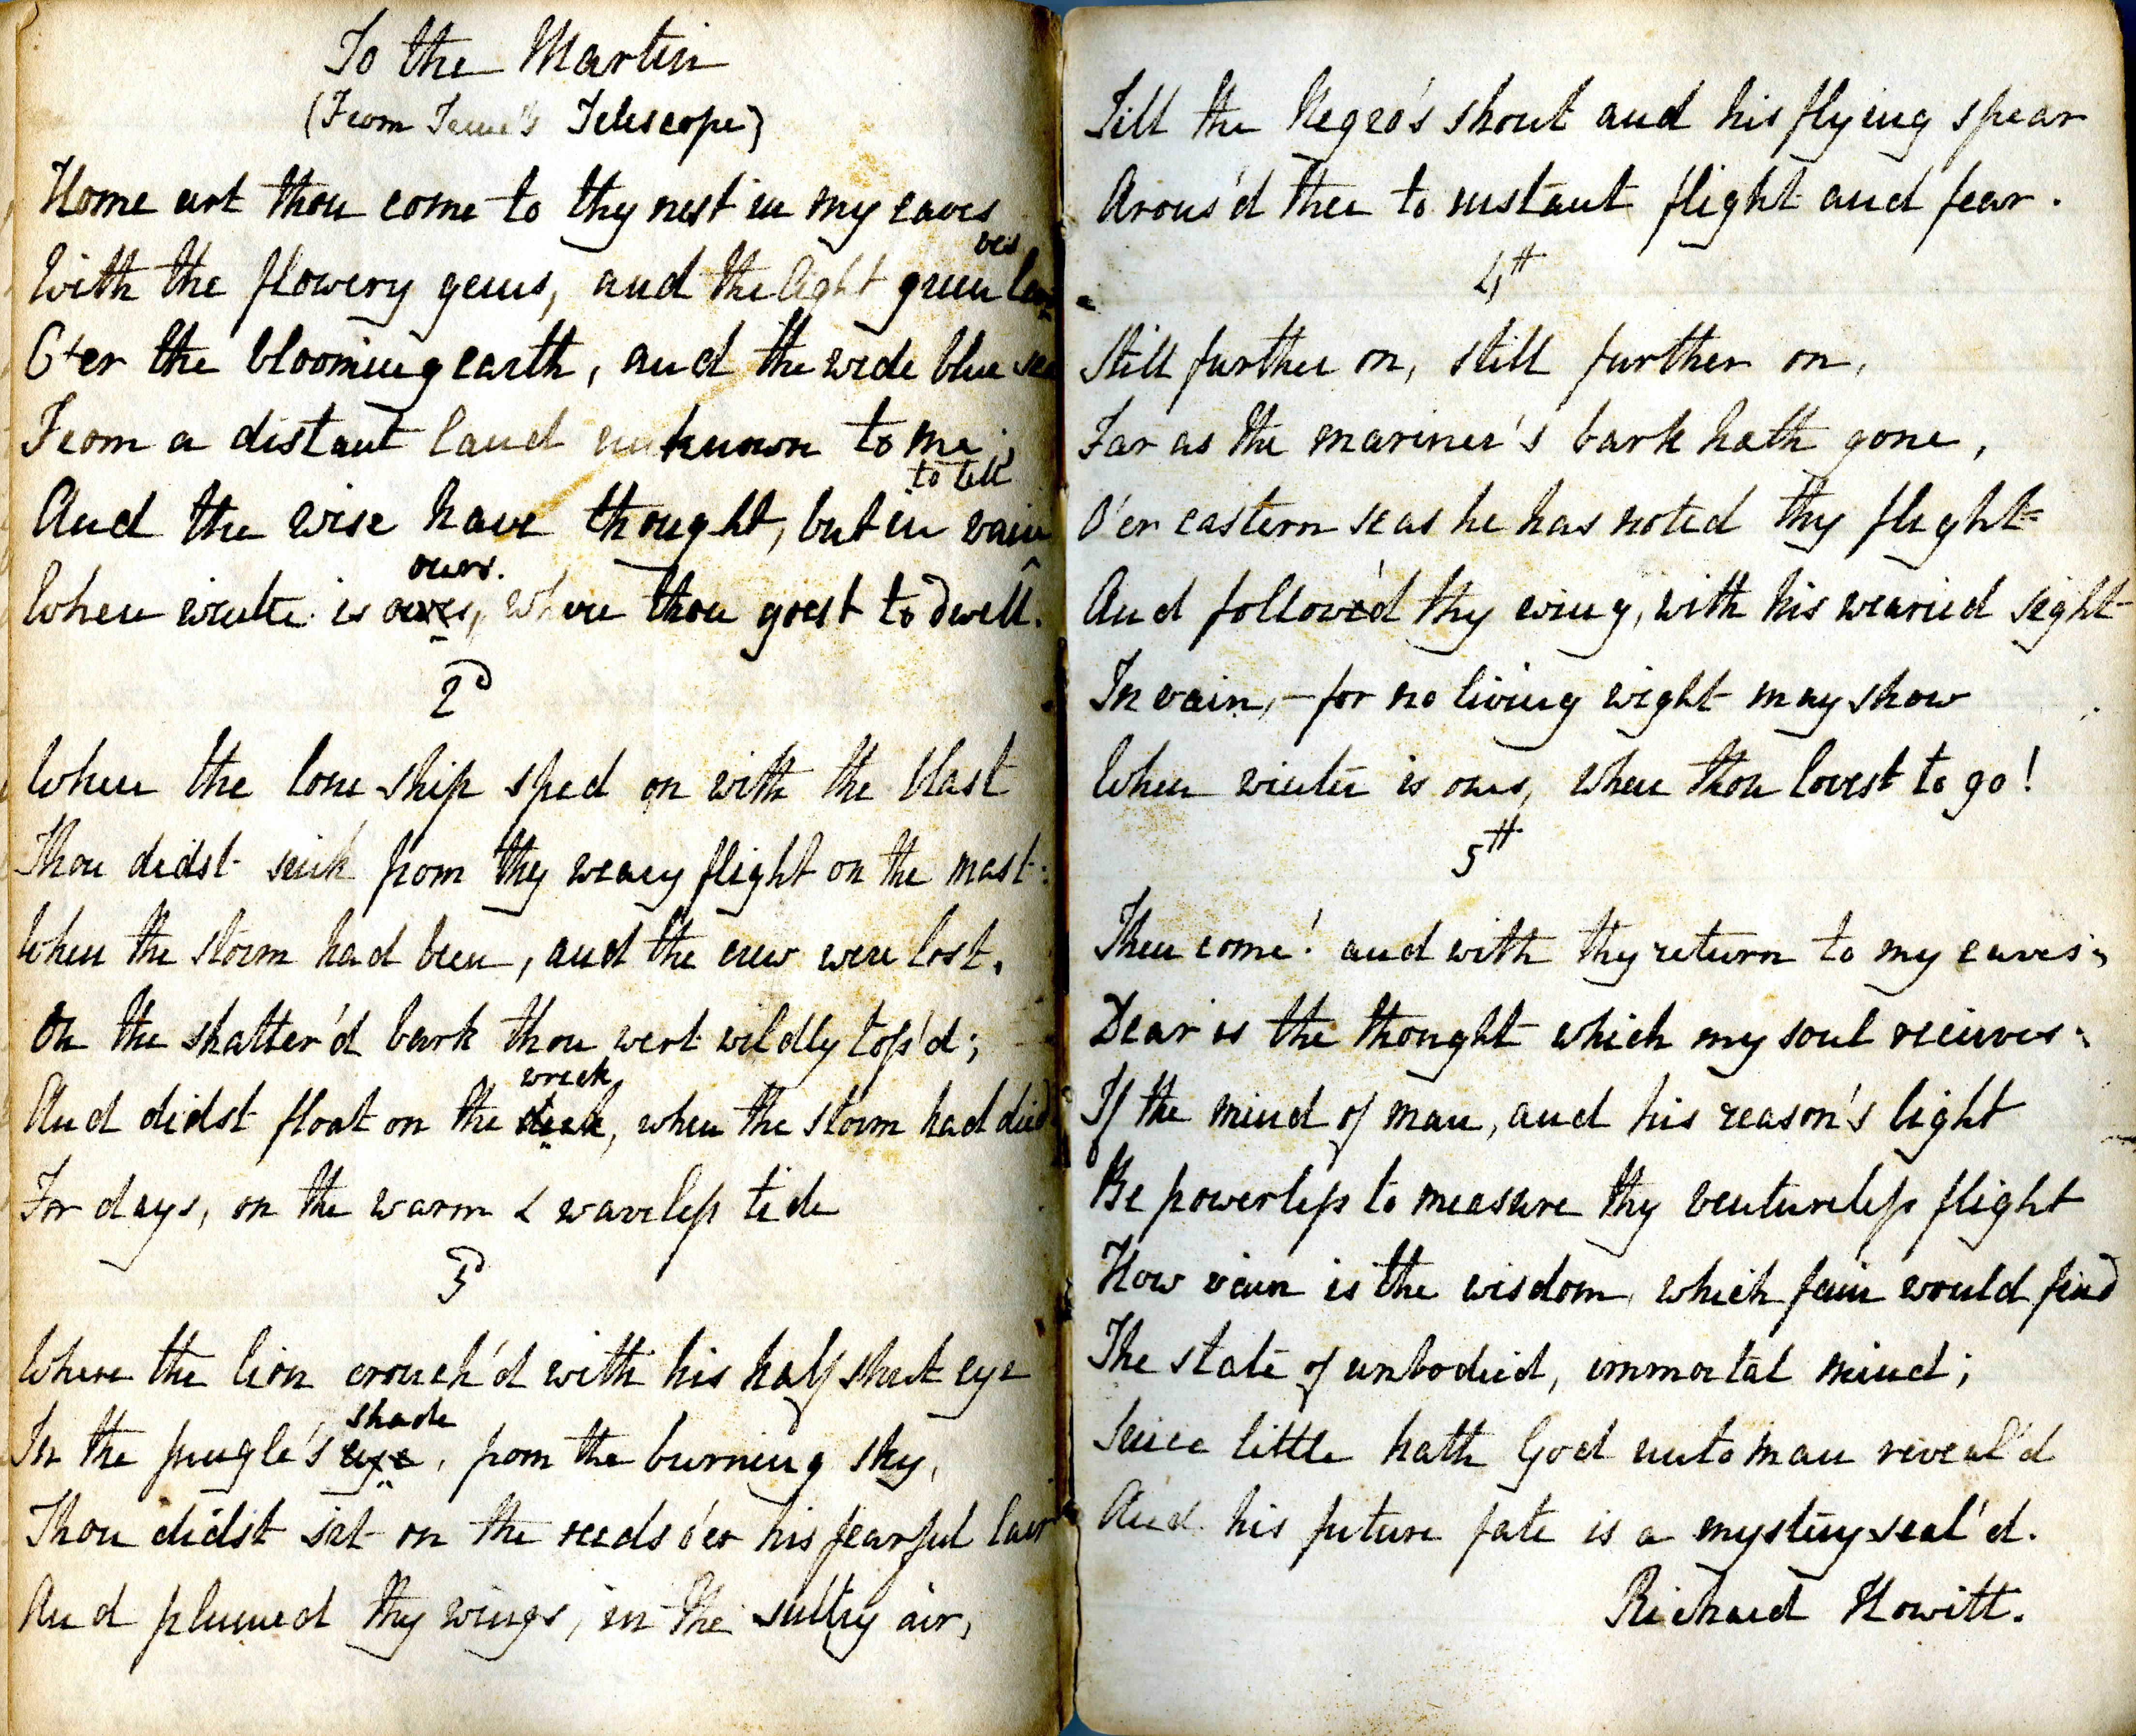 To the Martin
(From Time's Telescope)
Home art thou come to thy nest in my eaves
ves
With the flowery gems, and the light green lea
O'er the blooming earth, and the wide blue sea
From a distant land unknown to me;
to tell
And the wise have thought, but in vain
ours.
When winter is ours, where thou goest to dwell.
2d
When the lone ship sped on with the blast
Thou didst sink from thy weary flight on the mast:
When the storm had been, and the crew were lost,
On the shatter'd bark thou wert wildly toss'd;
wreck
And didst float on the deck, when the storm had died
For days, on the warm & waveless tide
3d
Where the lion crouch'd with his half shut eye
shade
In the jungle's eye, from the burning sky,
Thou didst sit on the reeds o'er his fearful lair
And plumed thy wings, in the sultry air,
Till the Negro's shout and his flying spear
Arous'd thee to instant flight and fear.
4th
Still further on, still further on,
Far as the mariner's bark hath gone,
O'er eastern seas he has noted thy flight
And follow'd thy wing, with his wearied sight
In vain, – for no living wight may show
When winter is ours, where thou lovest to go!
5th
Then come! and with thy return to my eaves;
Dear is the thought which my soul recieves:
If the mind of man, and his reason's light
Be powerless to measure thy ventureless flight
How vain is the wisdom, which fain would find
The state of unbodied, immortal mind;
Since little hath God unto man reveal'd
And his future fate is a mystery seal'd.
Richard Howitt.